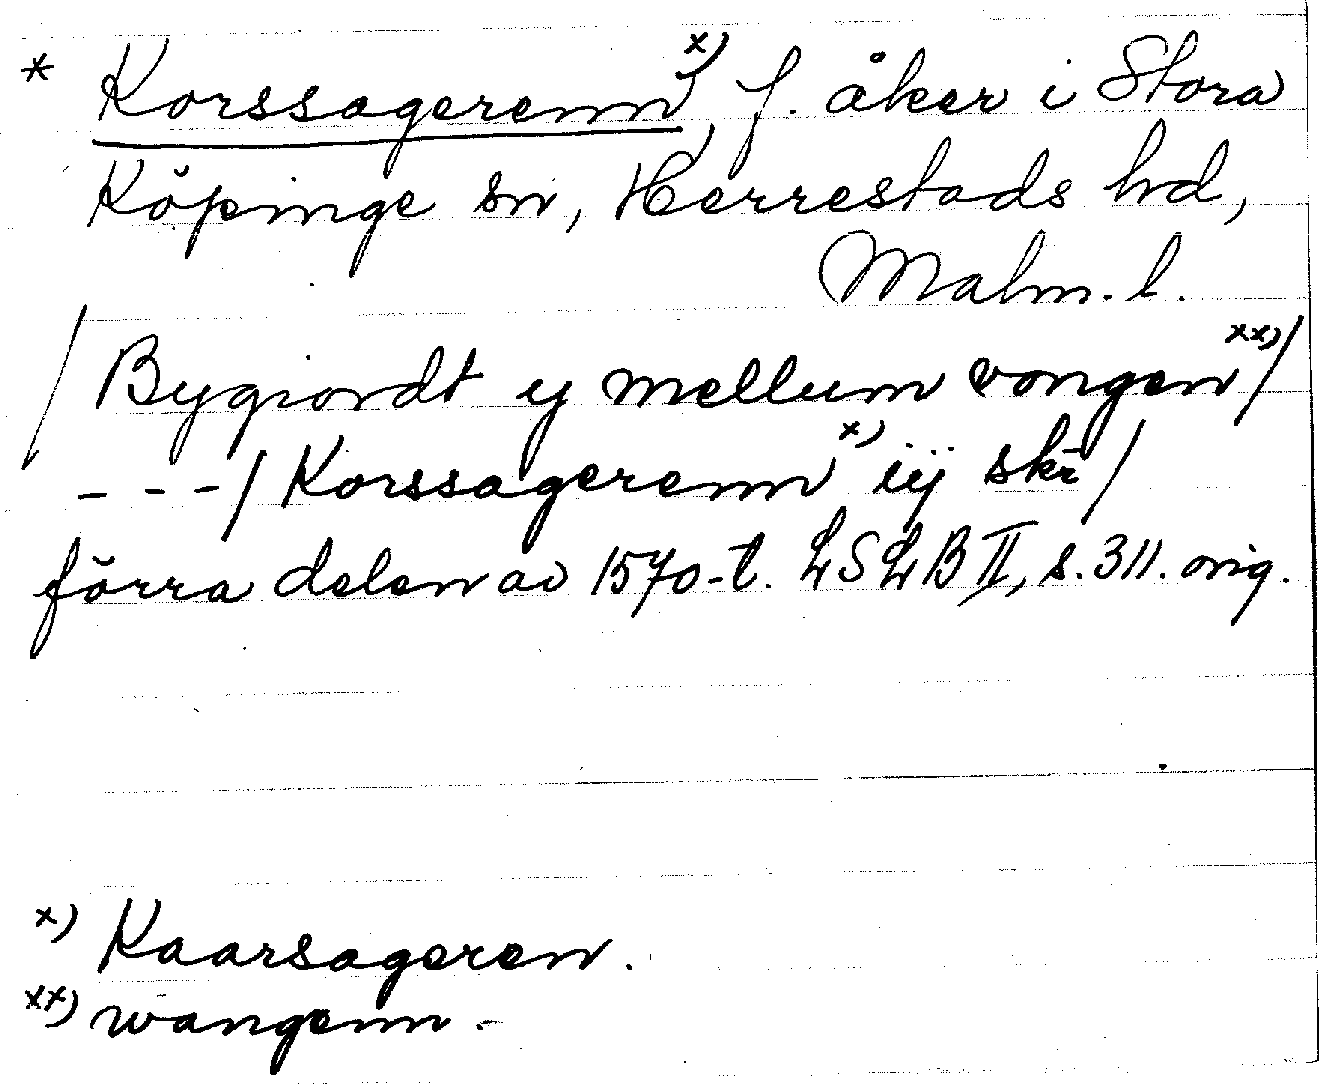 * Korssagerenn x), f. åker i Stora
Köpinge sn, Herrestads hd,
Malm. l.
/ Bygiordt ij mellum vongen xx) /
- - - / Korssagerenn x) iij skr /
förra delen av 1570-t. LSLB II, s. 311. orig.
x) Kaarsageren.
xx) wangenn -